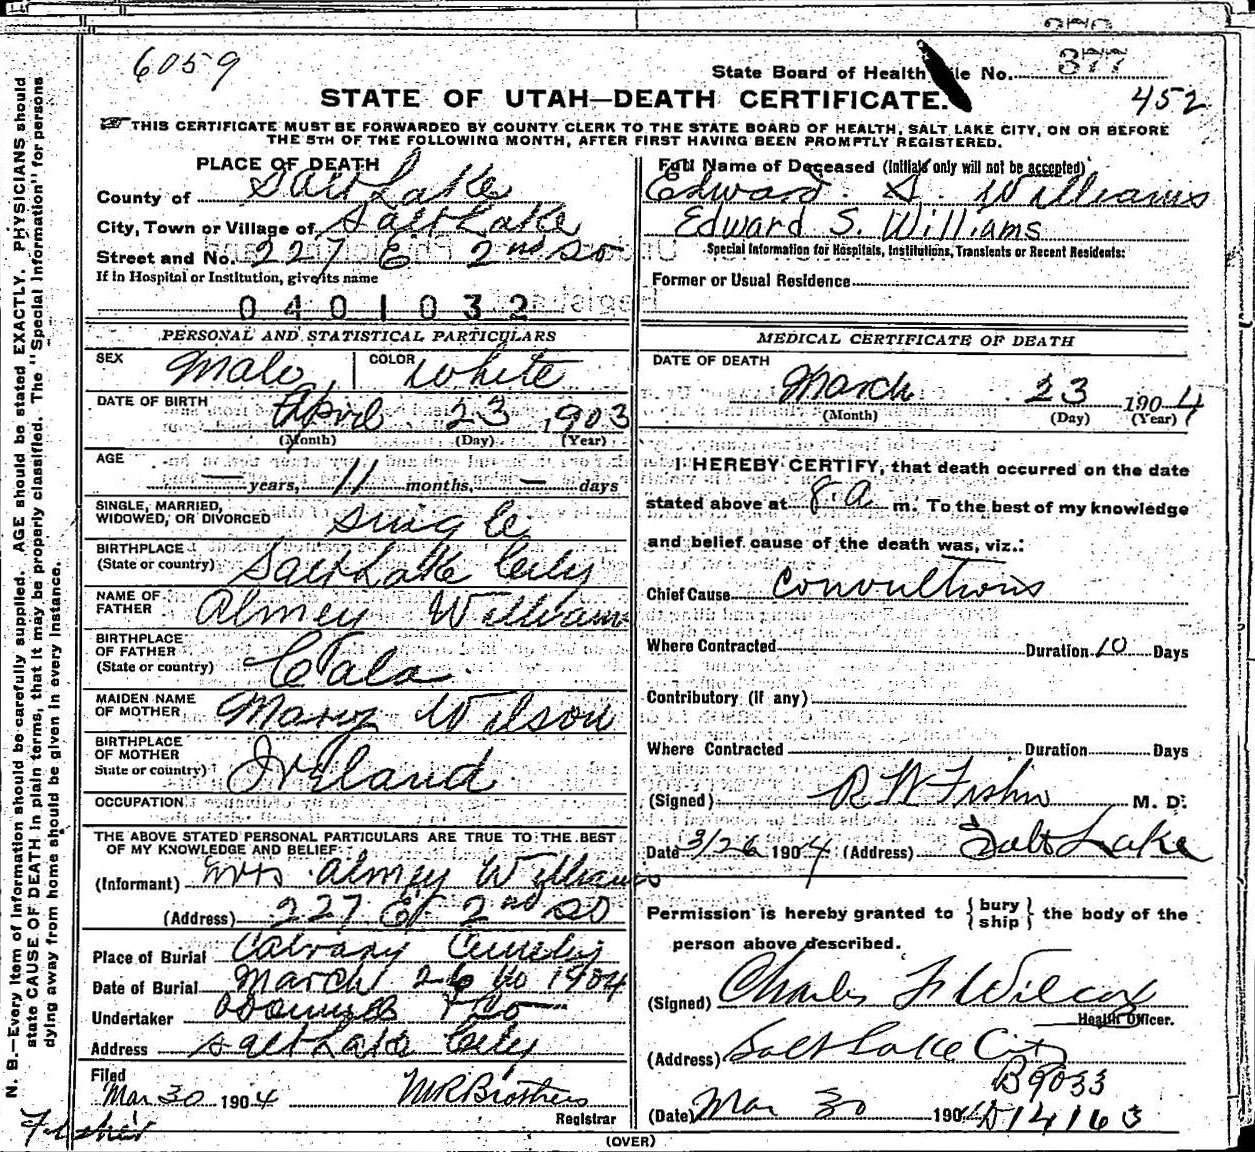 6059
State Board of Health File No. 377
452
STATE OF UTAH—DEATH CERTIFICATE.
THIS CERTIFICATE MUST BE FORWARDED BY COUNTY CLERK TO THE STATE BOARD OF HEALTH, SALT LAKE CITY, ON OR BEFORE
THE 5TH OF THE FOLLOWING MONTH, AFTER FIRST HAVING BEEN PROMPTLY REGISTERED.
PLACE OF DEATH
County of Salt Lake
City, Town or Village of Salt Lake
Street and No. 227 E 2nd So
If in Hospital or Institution, give its name
0401032
PERSONAL AND STATISTICAL PARTICULARS
SEX Male COLOR White
DATE OF BIRTH April 23 1903
(Month) (Day) (Year)
AGE
— years, 11 months, — days
SINGLE, MARRIED,
WIDOWED, OR DIVORCED Single
BIRTHPLACE
(State or country) Salt Lake City
NAME OF
FATHER Almey Williams
BIRTHPLACE
OF FATHER
(State or country)
MAIDEN NAME
OF MOTHER Mary Wilson
BIRTHPLACE
OF MOTHER
State or country) Ireland
OCCUPATION
THE ABOVE STATED PERSONAL PARTICULARS ARE TRUE TO THE BEST
OF MY KNOWLEDGE AND BELIEF
(Informant) Mrs Almey Williams
(Address) 227 E 2nd So
Place of Burial Calvary Cemetery
Date of Burial March 26 1904
Undertaker
Address Salt Lake City
Filed
Mar 30 1904 M R Brothers
Registrar
Full Name of Deceased (Initials only will not be accepted)
Edward S. Williams
Edward S. Williams
Special Information for Hospitals, Institutions, Transients or Recent Residents:
Former or Usual Residence
MEDICAL CERTIFICATE OF DEATH
DATE OF DEATH
March 23 1904
(Month) (Day) (Year)
I HEREBY CERTIFY, that death occurred on the date
stated above at 8 a m. To the best of my knowledge
and belief cause of the death was, viz.:
Chief Cause Convultions
Where Contracted Duration 10 Days
Contributory (if any)
Where Contracted Duration Days
(Signed) R W Fisher M. D.
Date 3/26 1904 (Address) Salt Lake
Permission is hereby granted to { bury ship } the body of the
person above described.
(Signed) Charles F Wilcox
Health Officer.
(Address) Salt Lake City
B9033
(Date) Mar 30 1904 D14163
(OVER)
N. B.—Every item of information should be carefully supplied. AGE should be stated EXACTLY. PHYSICIANS should
state CAUSE OF DEATH in plain terms, that it may be properly classified. The "Special Information" for persons
dying away from home should be given in every instance.
Fisher